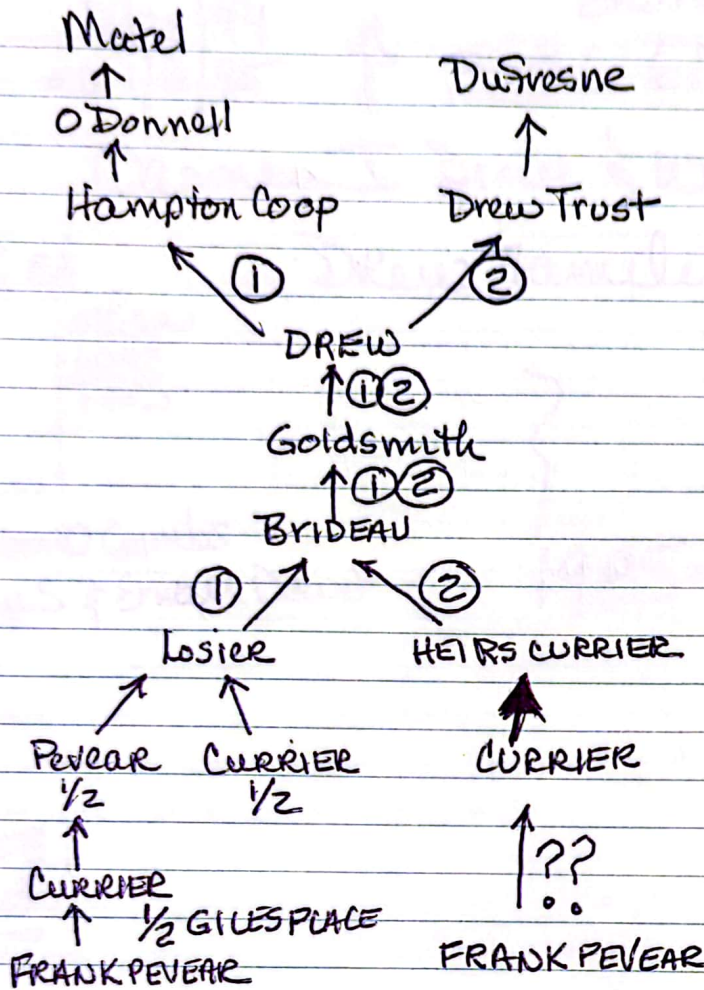 Matel
Dufresne
O'Donnell
Hampton Coop
Drew Trust
1
2
DREW
1 2
Goldsmith
1 2
BRIDEAU
1
2
Losier
HEIRS CURRIER
Pevear
CURRIER
CURRIER
1/2
1/2
??
CURRIER
1/2 GILES PLACE
FRANK PEVEAR
FRANK PEVEAR